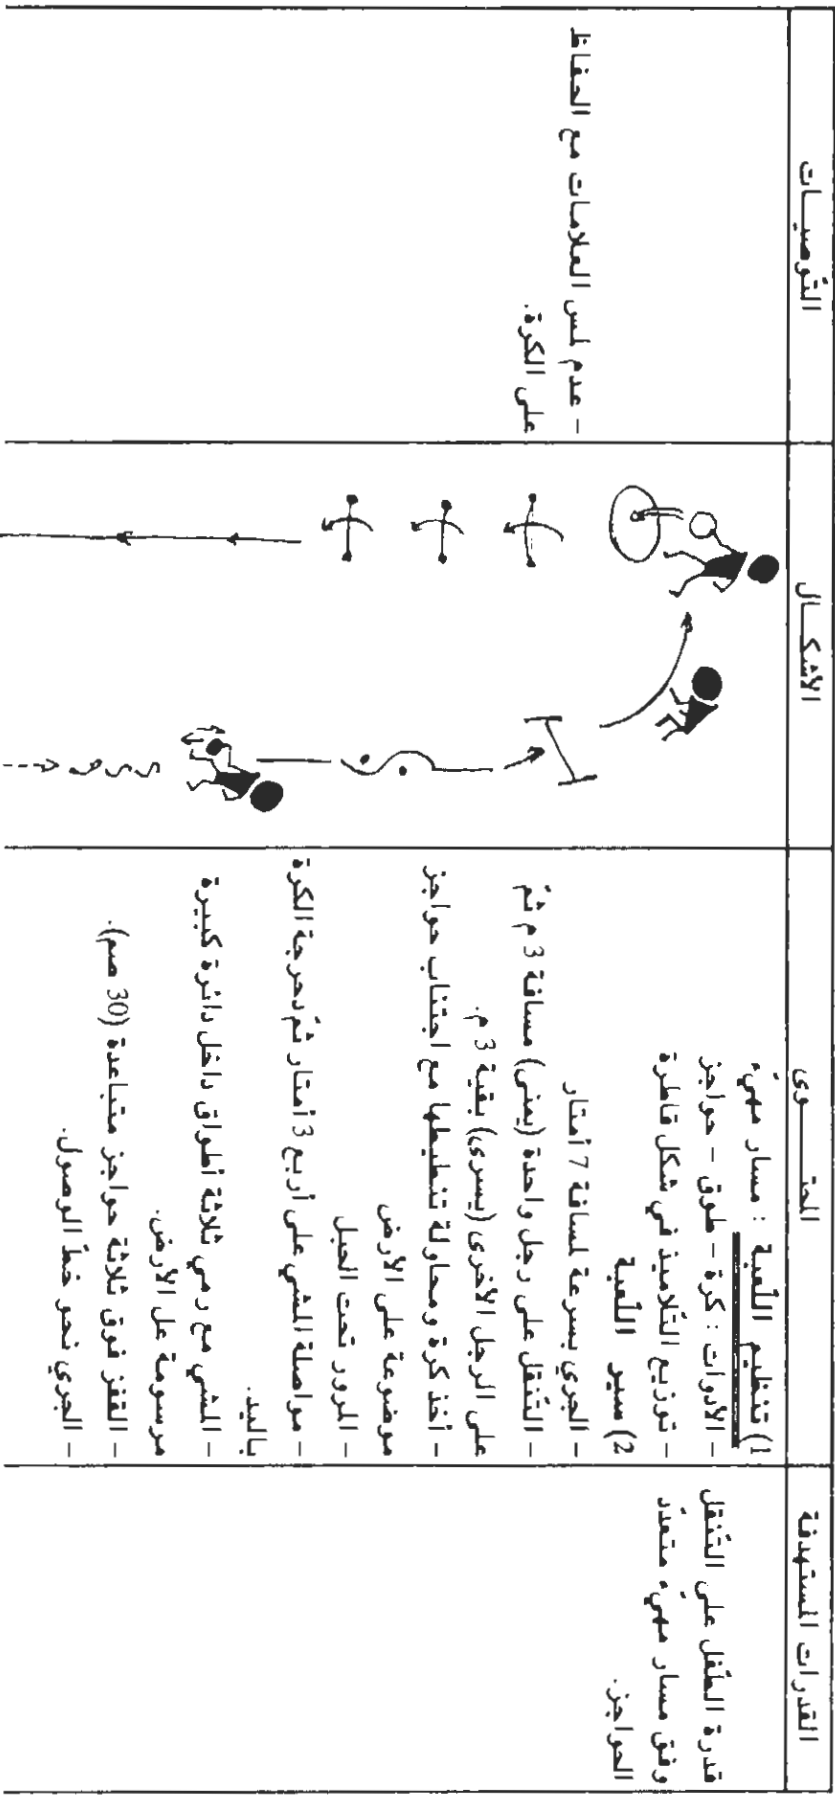 القدرات المستهدفة
قدرة الطّفل على التّنقل
وفق مسار مهيّء متعدّد
الحواجز.
المحتـــوى
1) تنظيم اللّعبة : مسار مهيّء
- الأدوات : كرة - طوق - حواجز
- توزيع التّلاميذ في شكل قاطرة
2) سير اللّعبة
- الجري بسرعة لمسافة 7 أمتار
- التّنقل على رجل واحدة (يمنى) مسافة 3 م ثمّ
على الرجل الأخرى (يسرى) بقية 3 م.
- أخذ كرة ومحاولة تنطيطها مع اجتناب حواجز
موضوعة على الأرض
- المرور تحت الحبل
- مواصلة المشي على أربع 3 أمتار ثمّ دحرجة الكرة
باليد.
- المشي مع رمي ثلاثة أطواق داخل دائرة كبيرة
مرسومة عل الأرض.
- القفز فوق ثلاثة حواجز متباعدة (30 صم).
- الجري نحو خطّ الوصول.
الأشكـــال
التّوصيـــات
- عدم لمس العلامات مع الحفاظ
على الكرة.